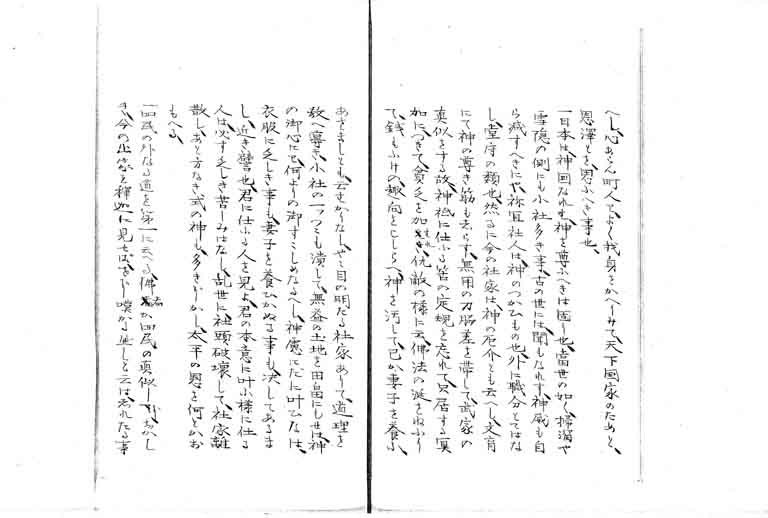 へし、心あらん町人てふく我身をかへりみて天下国家のためと、
恩澤とを思ふへき事也、
一日本は神国なれも神を尊ふへきは固り也、當世の如く掃溜や
雪隠の側にも小社多き事、古の世には聞もなれす、神威も自
ら減すへきにや、祢宜社人は神のつかひもの也、外に職分とてはな
し、堂守の類也、然るに今の社家は神の厄介とも云へし、文盲
にて神の尊き筋も志らす、無用の刀脇差を帯して武家の
真似をする故、神祇に仕ふる皆の定規を忘れて只居する冥
加につきて貧乏を加、仇敵の様に云佛法の涎をねふり
て、銭もふけの趣向をこしらへ、神を汚して己か妻子を養ふ、
あさましとも云はかりなし、やゝ目の明たる社家ありて道理を
教へ導き、小社の一ツつゝも潰して無益の土地を田畠にもせは、神
の御心にて何よりの御すゝしめなるへし、神慮にたに叶ひなは、
衣服に乏しき事も妻子を養ひかぬる事も決してあるま
し、近き譬也、君に仕ふる人を見よ、君の本意に叶ふ様に仕る
人は必す乏しき苦しみはなし、乱世に社頭破壊して社家離
散し、あと方なき式の神も多きそかし、太平の恩を何とかお
もへる、
一四民の外なる道を第一に云へる佛者か四民の真似し
き、今の出家を釋迦に見せはをし嘆かるへしと云は志れたる事